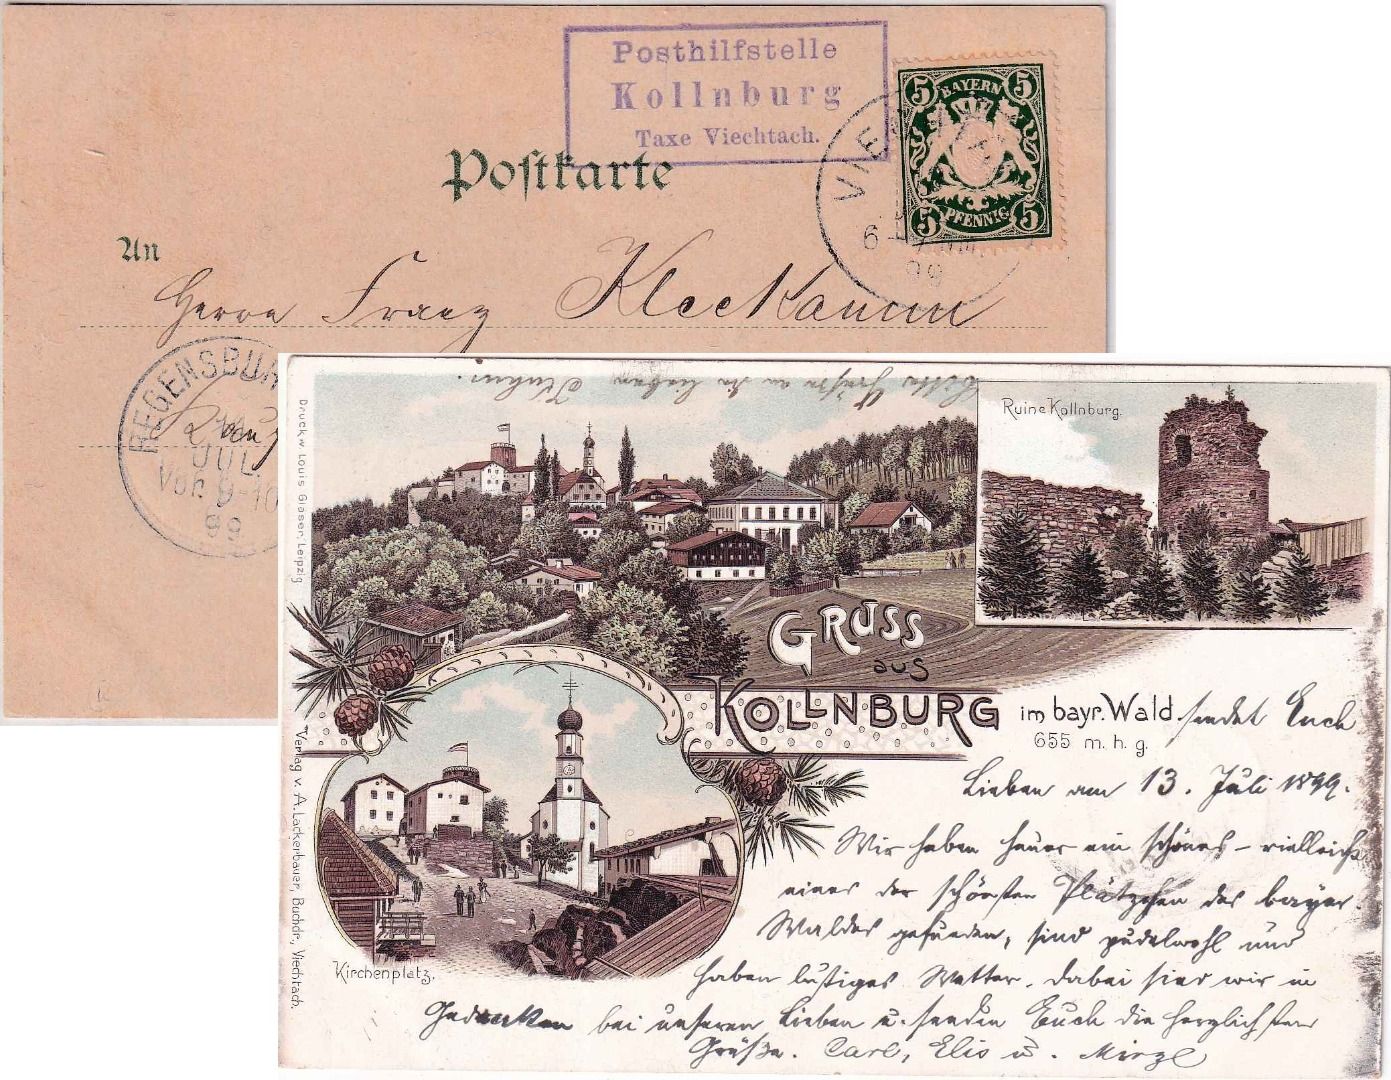 Posthilfstelle
Kollnburg
Taxe Viechtach.
BAYERN
5 5
5 5
PFENNIG
VIECHTACH
6
99
Postkarte
An
Herrn Franz Kleekamm
REGENSBUR
JUL
Vor. 9-10
99
Bitte Grüße an die lieben
Ruine Kollnburg.
Druck v. Louis Glaser, Leipzig
GRUSS
aus
KOLLNBURG im bayr. Wald. sendet Euch
655 m. h. g.
Lieben am 13. Juli 1899.
Wir haben heuer ein schönes – vielleicht
eines der schönsten Plätzchen des bayer.
Waldes gefunden, sind pudelwohl und
haben lustiges Wetter. Dabei sind wir in
Gedanken bei unseren Lieben u. senden Euch die herzlichsten
Grüße. Carl, Elis u. Mirzl
Kirchenplatz.
Verlag v. A. Lackerbauer, Buchdr., Viechtach.